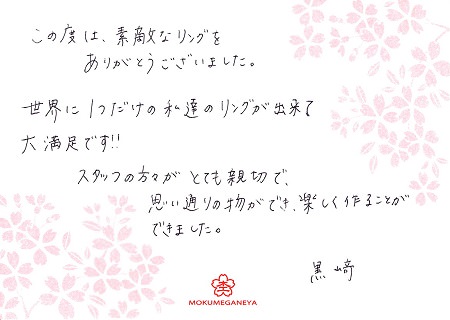 この度は、素敵なリングを
ありがとうございました。
世界に1つだけの私達のリングが出来て
大満足です!!
スタッフの方々が とても親切で、
思い通りの物ができ、楽しく作ることが
できました。
黒崎
MOKUMEGANEYA